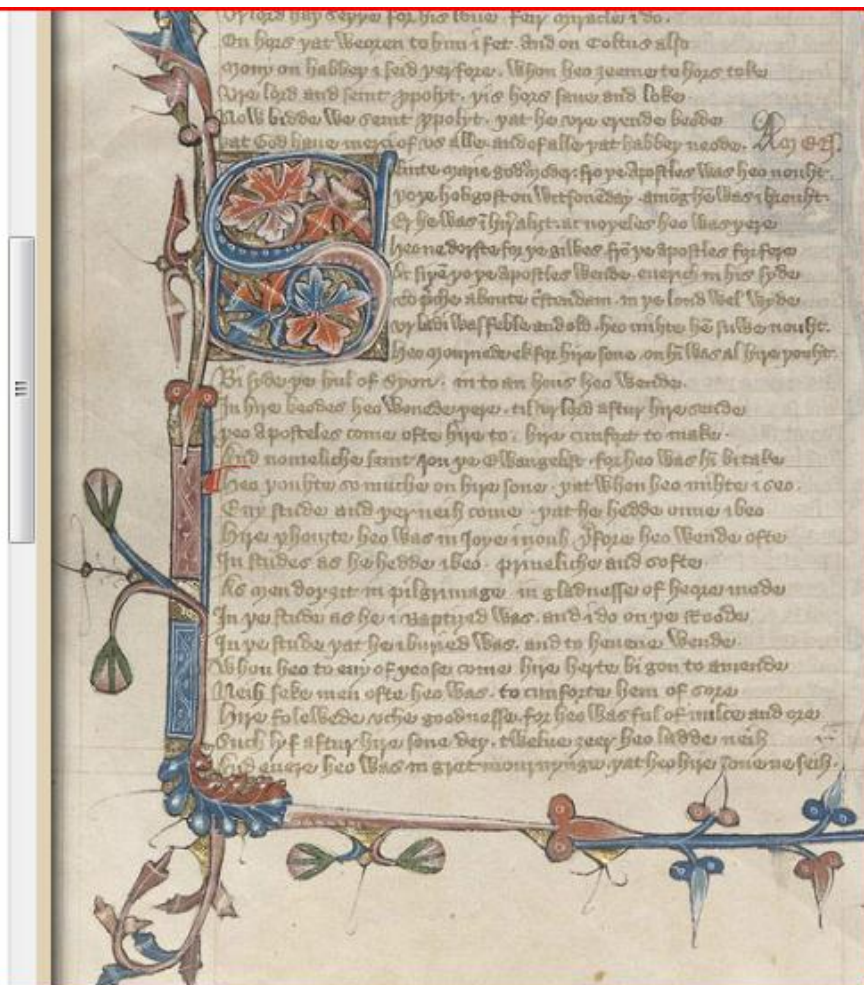 Vr lord haþ seyþe for his loue feir miracle i do
On hors þat weoren to him i fet. And on Coltus also
Mony on habbeþ i seid þerfore. Whon heo ȝeeme to hors toke
Vre lord and seint ypolyt. þis hors saue and loke
Now bidde we seint ypolyt. þat he vre erende beode
þat God haue merci of vs alle. and of alle þat habbeþ neode. Amen
Seinte Marie godus moder. fro þe Apostles was heo nouht.
þo þe holi gost on witsoneday. among hem was i brouht.
heo ne dorste for þe giwes. from þe apostles fer fare
þe apostles wende. euerich in his syde
To preche aboute cristendam. in þe lond wel wyde
Vr ladi was feble and old. heo mihte hem suwe nouht.
Heo mournede ek for hire sone. on him was al hire þouht.
Bi syde þe hul of Syon. in to an hous heo wende.
In hire beodes heo wonede þere. til vr lord aftur hire sende
þeo Aposteles come ofte hire to. hire cumfort to make.
And nomeliche seint Jon þe Ewangelist. for heo was him bitake
Heo þouhte so muche on hire sone. þat whon heo mihte i seo.
Eny stude and þer neih come. þat he hedde onne i beo
Hire þhouȝte heo was in Joye inouh þerfore heo wende ofte
In studes as he hedde i beo. priueliche and softe
As men doþ ȝit in pilgrimage. in gladnesse of heore mode
In þe stude as he i Baptized was. and i do on þe Roode
In þe stude þat he i buried was. and to heuene wende.
Whon heo to eny of þeose come hire herte bi gon to amende
Neih seke men ofte heo was. to cumforte hem of sore
Hire folewede vche goodnesse. for heo was ful of milce and ore
Such lyf aftur hire sone deþ. twelue ȝeer heo ladde neih
And euere heo was in gret mournynge. þat heo hire sone ne seih.